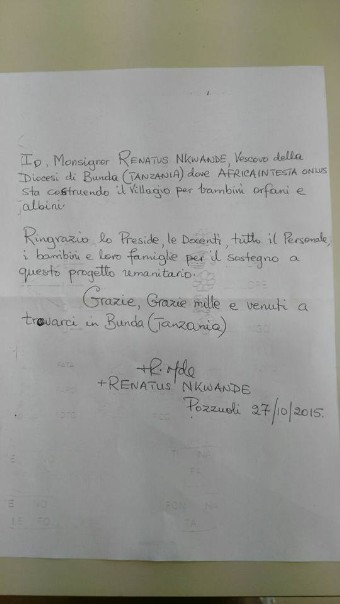 Io, Monsignor RENATUS NKWANDE, Vescovo della
Diocesi di Bunda (TANZANIA) dove AFRICAINTESTA ONLUS
sta costruendo il Villagio per bambini orfani e
albini.
Ringrazio lo Preside, le Docenti, tutto il Personale,
i bambini e loro famiglie per il sostegno a
questo progetto umanitario.
Grazie, Grazie mille e venuti a
trovarci in Bunda (Tanzania)
+RENATUS NKWANDE
Pozzuoli 27/10/2015.